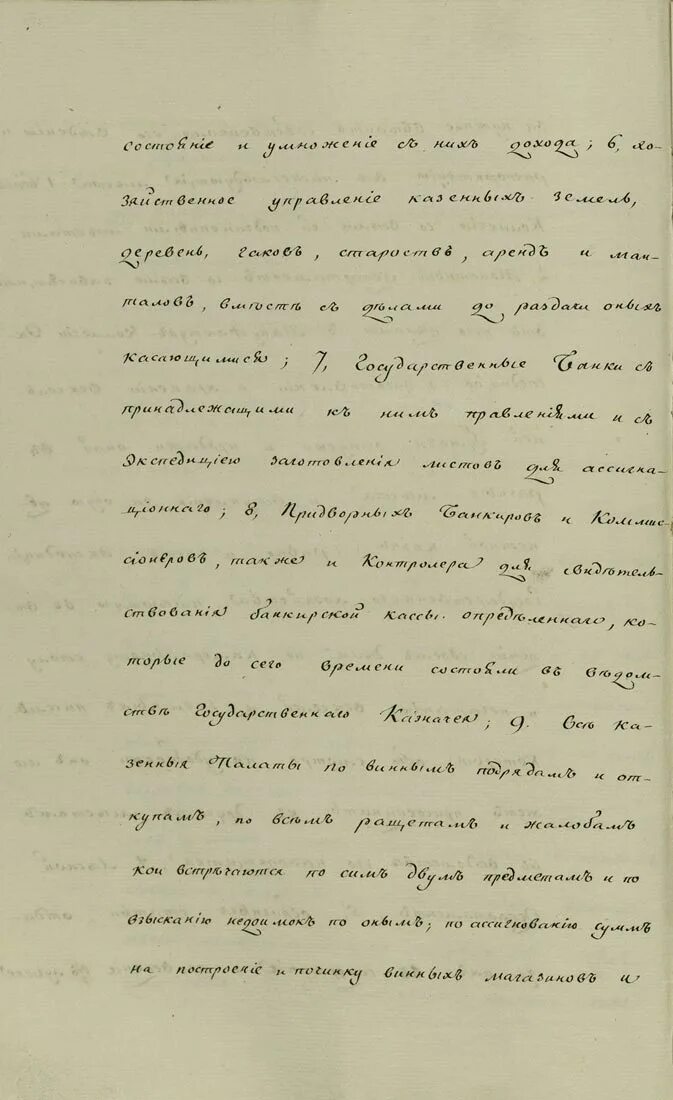 состояніе и умноженіе съ нихъ дохода; 6, хо-
зяйственное управленіе казенныхъ земель,
деревень, гаковъ, староствъ, арендъ и ман-
таловъ, вмѣстѣ съ дѣлами до раздачи оныхъ
касающимися; 7, Государственные Банки съ
принадлежащими къ нимъ правленіями и съ
Экспедиціею заготовленія листовъ для ассигна-
ціоннаго; 8, Придворныхъ Банкировъ и Коммис-
сіонѣровъ, также и Контролера для свидѣтель-
ствованія банкирской кассы опредѣленнаго, ко-
торые до сего времени состояли въ вѣдом-
ствѣ Государственнаго Казначея; 9. Всѣ ка-
зенныя Палаты по виннымъ подрядамъ и от-
купамъ, по всѣмъ ращетамъ и жалобамъ
кои встрѣчаются по симъ двумъ предметамъ и по
взысканію недоимокъ по онымъ; по ассигнованію суммъ
на построеніе и починку винныхъ магазиновъ и